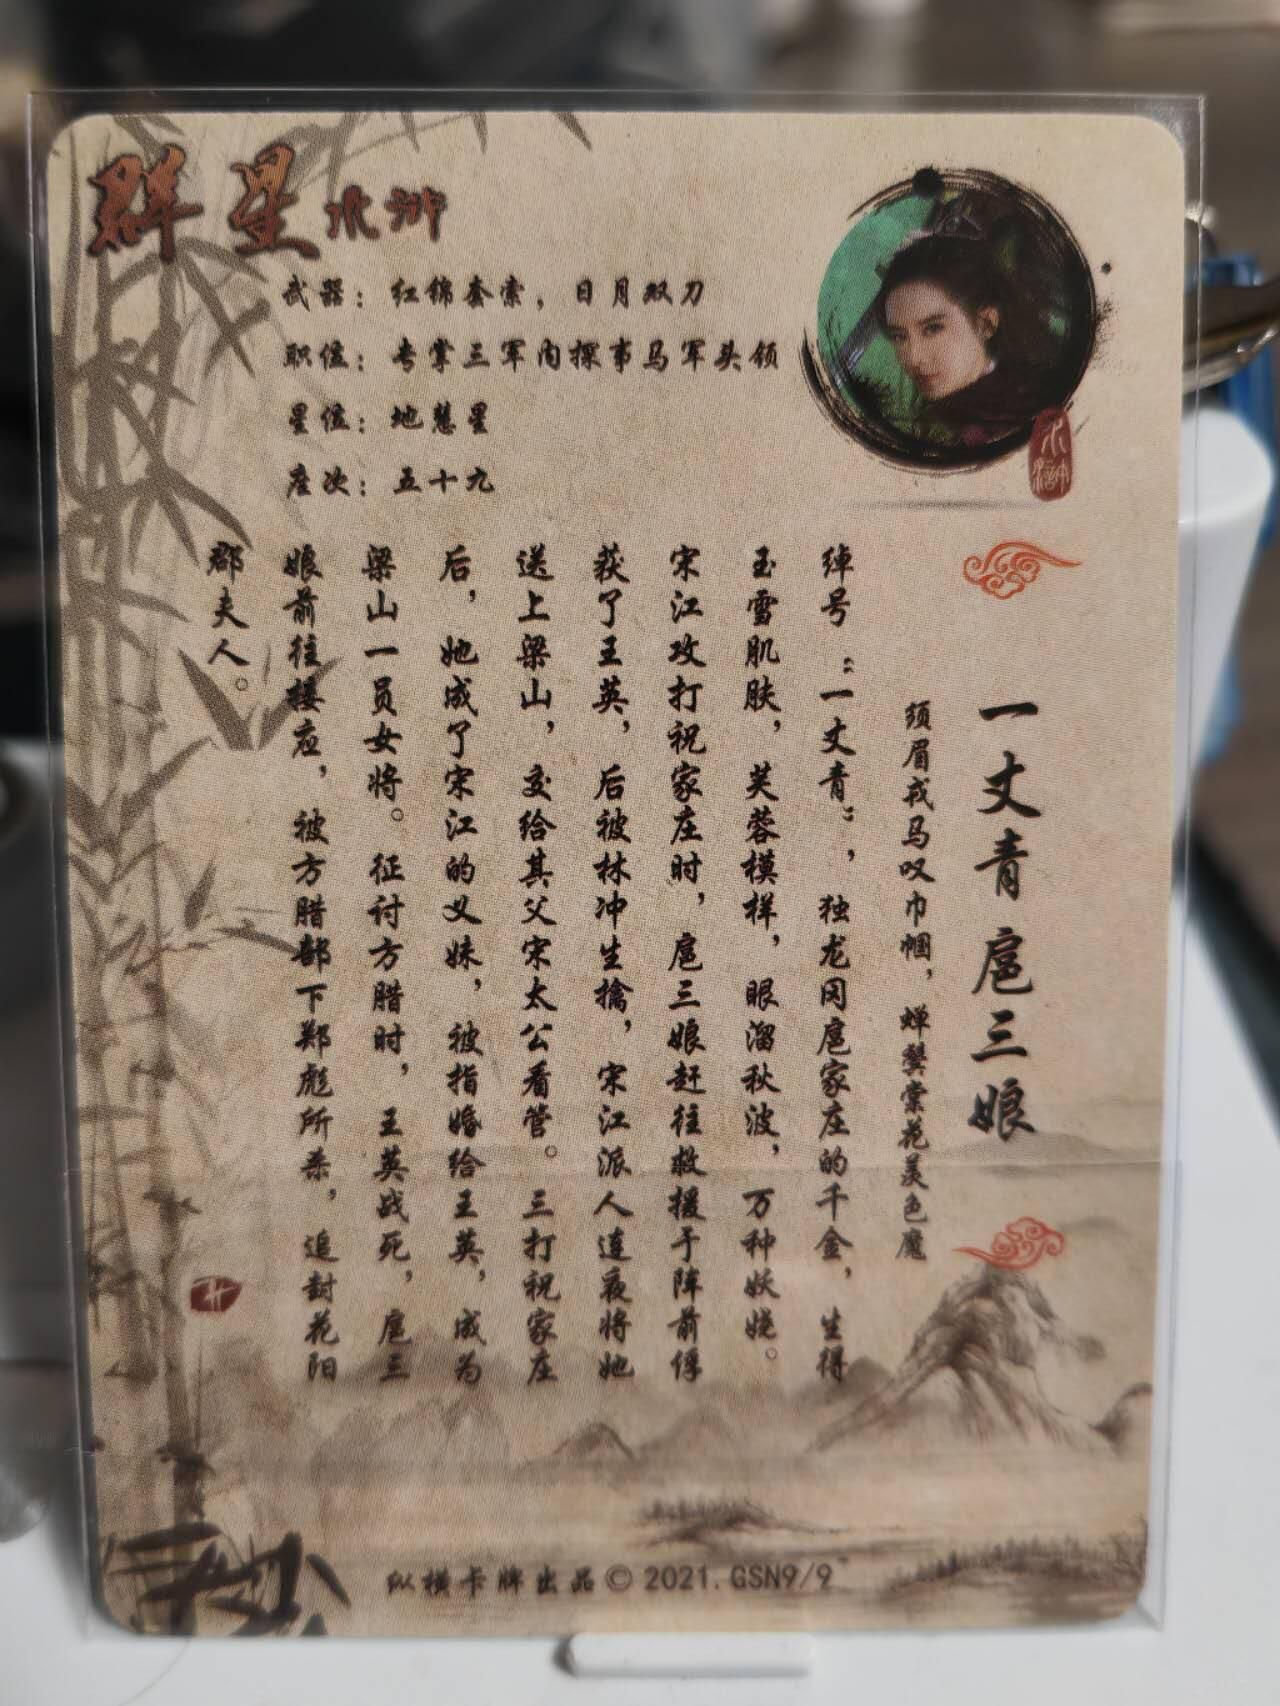 群星水浒
武器：红锦套索，日月双刀
职位：专掌三军内探事马军头领
星位：地慧星
座次：五十九
水浒
一丈青扈三娘
须眉戎马叹巾帼，蝉鬓棠花羡色魔
绰号：“一丈青”，独龙冈扈家庄的千金，生得
玉雪肌肤，芙蓉模样，眼溜秋波，万种妖娆。
宋江攻打祝家庄时，扈三娘赶往救援于阵前俘
获了王英，后被林冲生擒，宋江派人连夜将她
送上梁山，交给其父宋太公看管。三打祝家庄
后，她成了宋江的义妹，被指婚给王英，成为
梁山一员女将。征讨方腊时，王英战死，扈三
娘前往接应，被方腊部下郑彪所杀，追封花阳
郡夫人。
纵横卡牌出品© 2021. GSN9/9